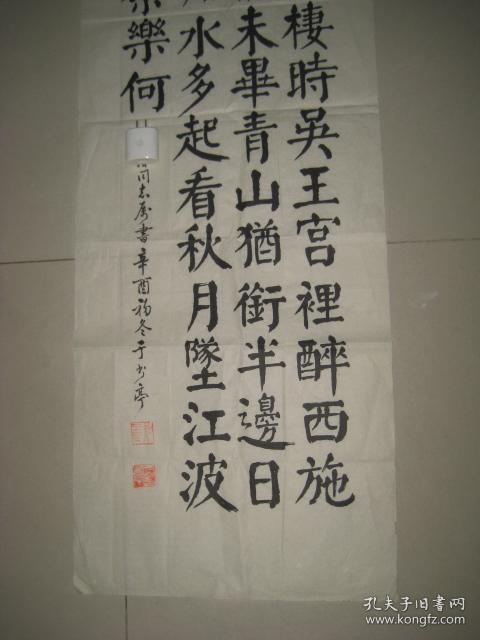 棲時吳王宮裡醉西施
未畢青山猶銜半邊日
水多起看秋月墜江波
樂何
同志属书辛酉初冬于
亭
孔夫子旧书网
www.kongfz.com